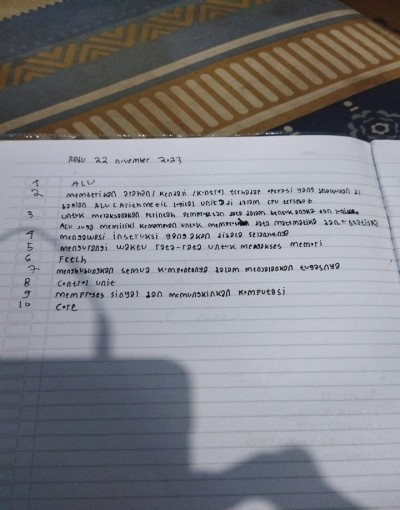 Rabu 22 november 2023
1 ALU
2 memberikan arahan/kendali/kontrol terhadap operasi yang dilakukan di
bagian ALU (Arithmetic Logical unit) di dalam CPU tersebut
3 untuk melaksanakan perintah pemprosesan data dalam bentuk angka dan
ALU juga memiliki kemampuan untuk data matematika dan
4 mengawasi instruksi yang akan dibaca selanjutnya
5 mengurangi waktu rata-rata untuk mengakses memori
6 Fetch
7 menghubungkan semua komponennya dalam menjalankan tugasnya
8 Control unit
9 memproses sinyal dan memungkinkan komputasi
10 Core